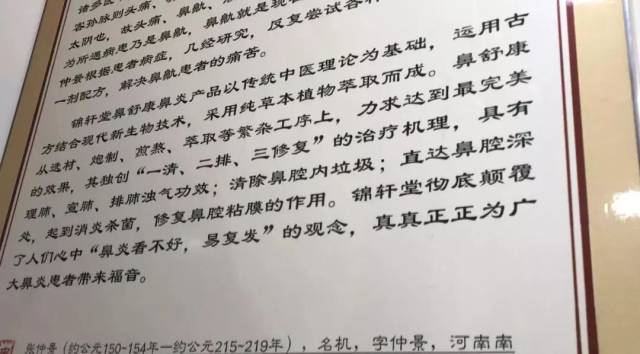 诸多医
客孙脉则头痛、
太阴也，故头痛、鼻鼽、鼻鼽就是现在
为所通病患乃是鼻鼽，
仲景根据患者病症，几经研究，反复尝试各种
一剂配方，解决鼻鼽患者的痛苦。
锦轩堂鼻舒康鼻炎产品以传统中医理论为基础，运用古
方结合现代新生物技术，采用纯草本植物萃取而成。鼻舒康
从选材、炮制、煎熬、萃取等繁杂工序上，力求达到最完美
的效果，其独创“一清、二排、三修复”的治疗机理，具有
理肺、宣肺、排肺浊气功效；清除鼻腔内垃圾；直达鼻腔深
处，起到消炎杀菌，修复鼻腔粘膜的作用。锦轩堂彻底颠覆
了人们心中“鼻炎看不好，易复发”的观念，真真正正为广
大鼻炎患者带来福音。
张仲景（约公元150~154年一约公元215~219年），名机，字仲景，河南南